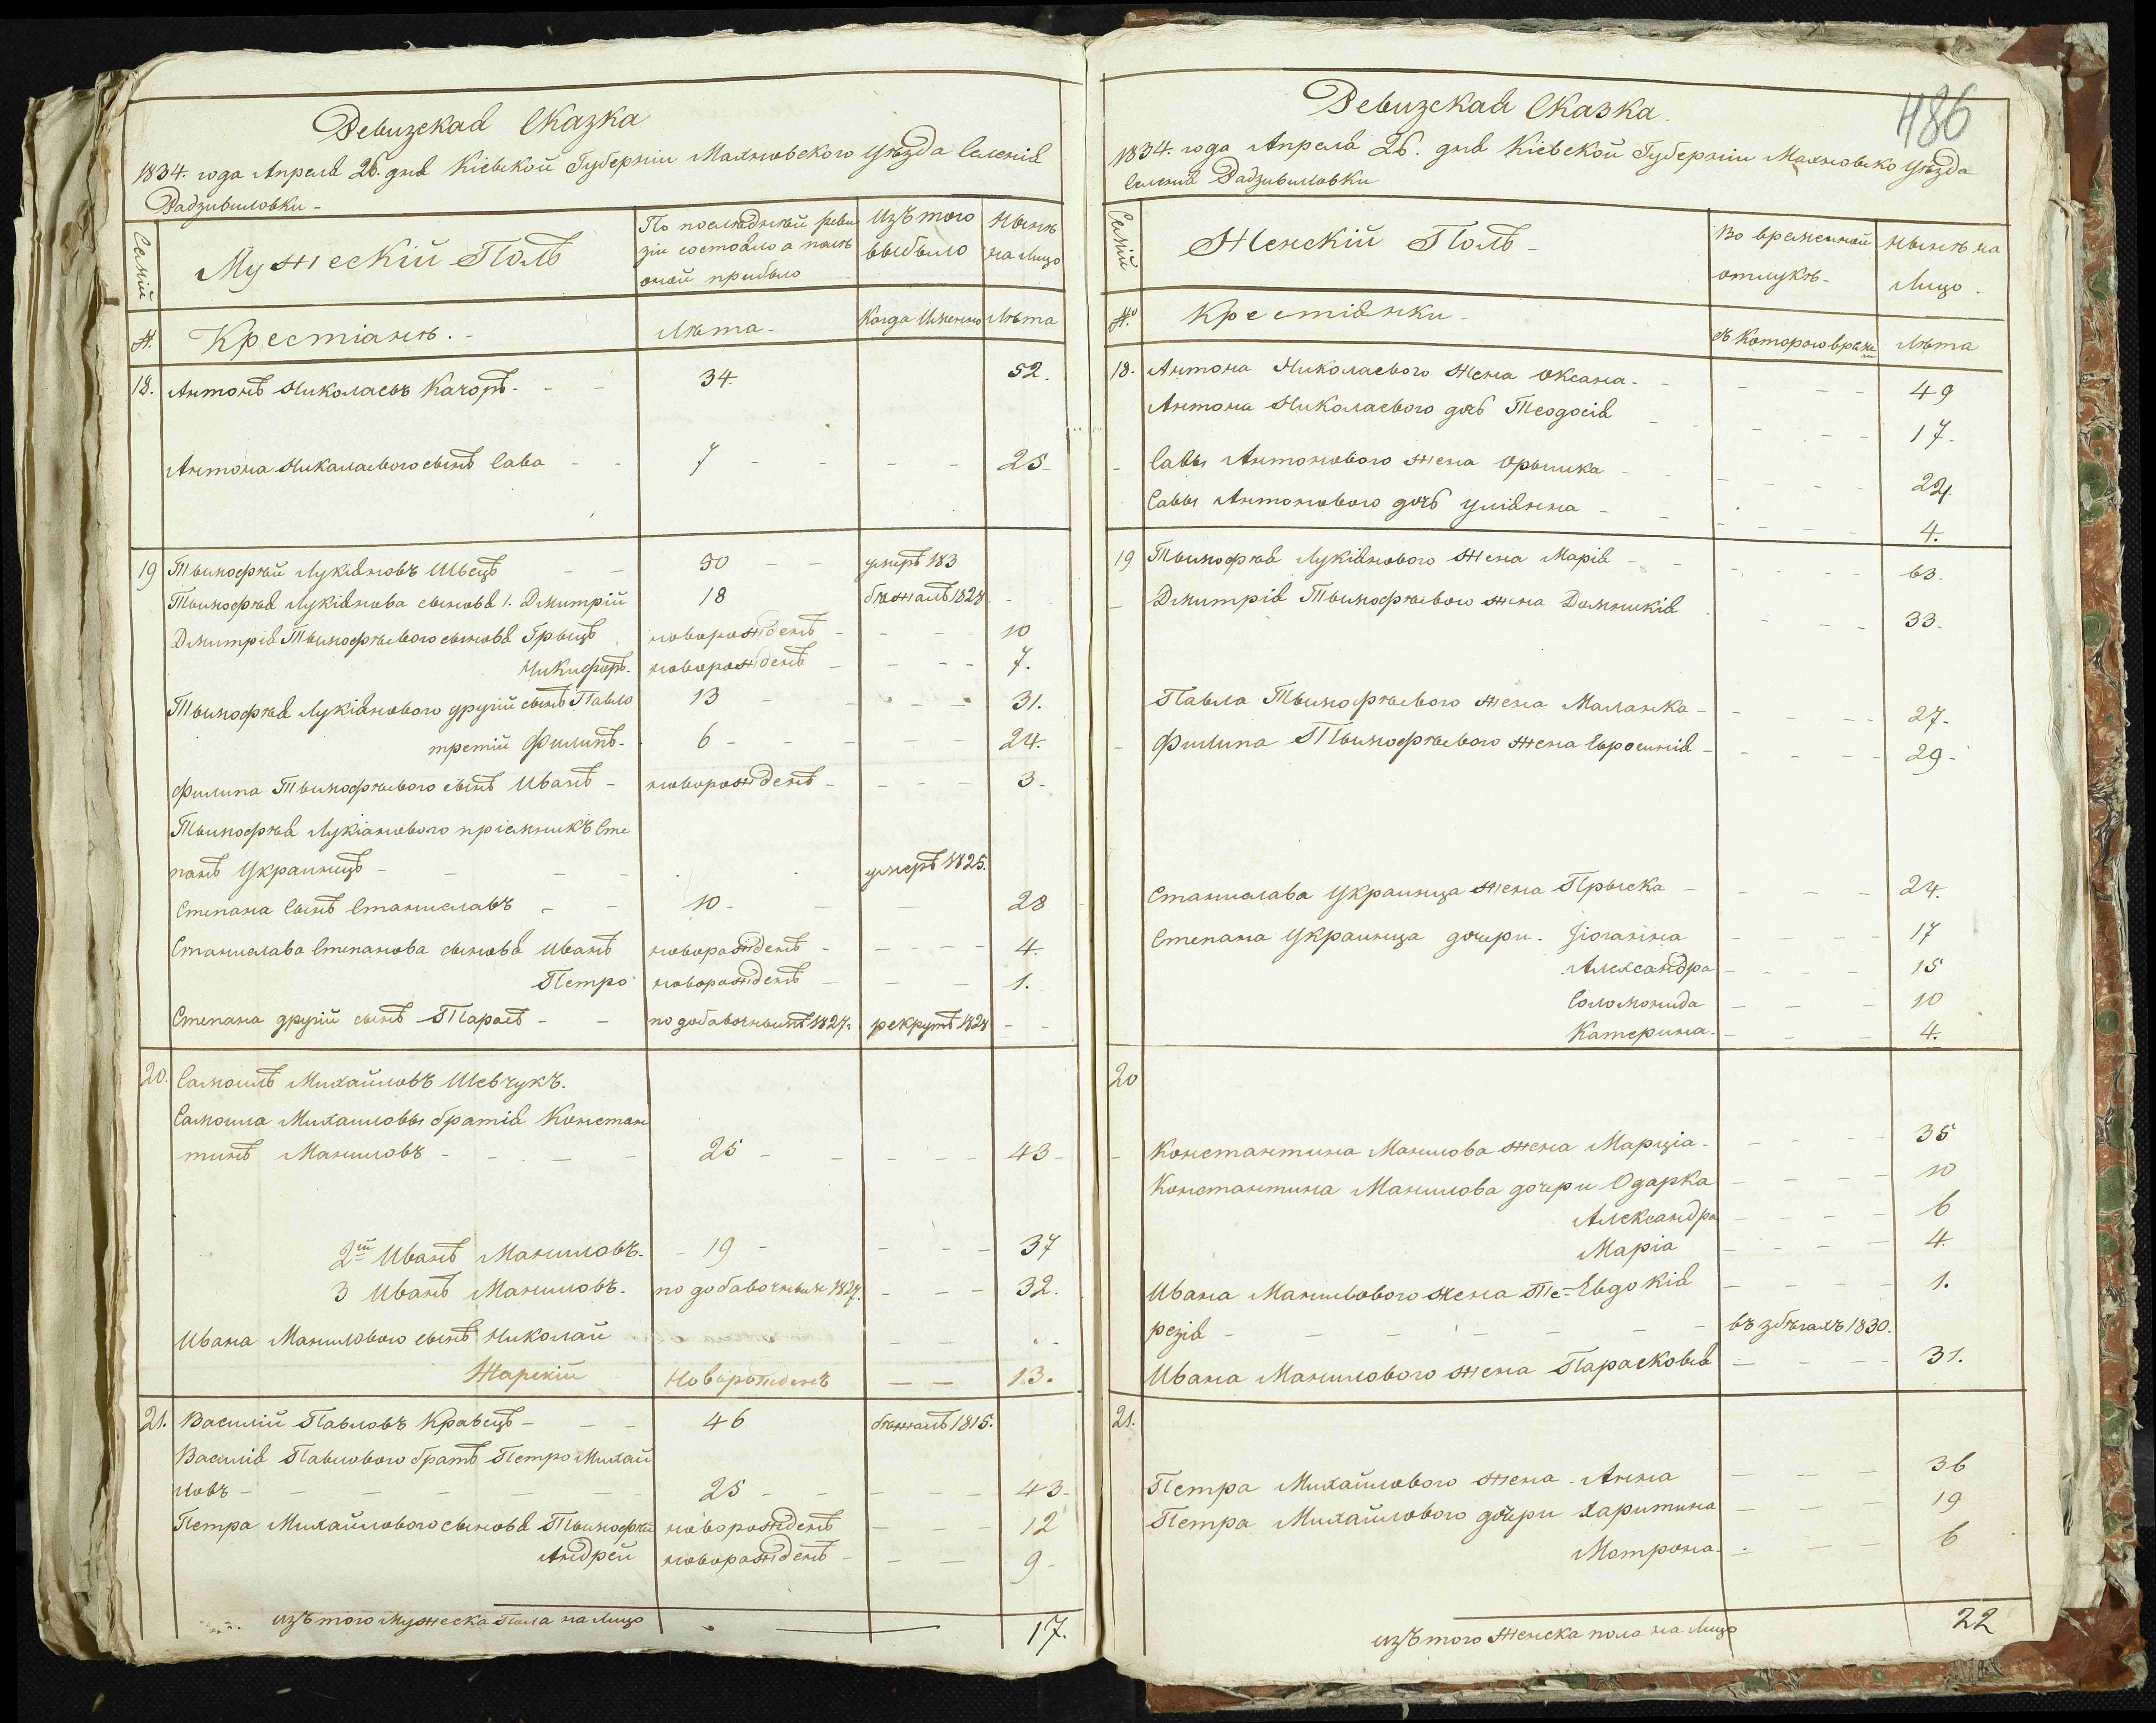 Ревизская Сказка
1834. года Апреля 26. дня Кіевской Губерніи Махновского Уѣзда Селенія
Радзивиловки -
Семій
Мужескій Полъ
По последнѣй реви
зіи состояло а послѣ
оной прибыло
Изъ того
выбыло
Нынѣ
на Лицо
№.
Крестіянѣ. -
Лѣта -
Когда Именно
Лѣта
18. Антонъ Николаевъ Качоръ. - - 34. 52.
Антона Николаевого сынъ Сава - - 7 - - - - 25
19 Тымофѣй Лукіяновъ Швецъ - - 50 - - умеръ 183
Тымофѣя Лукіянова сыновя 1. Дмитрій 18 бѣжалъ 1828 -
Дмитрія Тымофѣевого сыновя Грыць новорожденъ - - - 10
Никифоръ. новорожденъ - - - - 7.
Тымофѣя Лукіянового другій сынъ Павло 13 - - - - 31.
третій Филипъ. 6 - - - - - 24.
Филипа Тымофѣевого сынъ Иванъ - новорожденъ - - - - 3 -
Тымофѣя Лукіянового пріемникъ Сте
панъ Украинецъ - - - - умеръ 1825.
Степана Сынъ Станиславъ - - 10 - - - 28
Станислава Степанова сыновя Иванъ новорожденъ - - - - - 4.
Петро новорожденъ - - - 1.
Степана другій сынъ Тарасъ - - по добавочнымъ 1827. рекрутъ 1828 - -
20. Самоилъ Михайловъ Шевчукъ.
Самоила Михаиловы братія Констан
тинъ Маниловъ - - - - - 25 - - - - - 43 -
2й Иванъ Маниловъ. - 19 - - - - 37
3 Иванъ Маниловъ. по добавочным 1827. - - - 32.
Ивана Манилового сынъ Николай
Жаркій Новорожденъ - - 13.
21. Василій Павловъ Кравецъ - - - 46 бѣжалъ 1815.
Василія Павлового братъ Петро Михай
ловъ - - - - - - - 25 - - - - - 43 -
Петра Михайлового сыновя Тымофѣй новорожденъ - - - 12
Андрей новорожденъ - - - 9 -
изъ того Мужеска Пола на Лицо 17.
486
Ревизская Сказка.
1834. года Апреля 26. дня Кіевской Губерніи Махновско Уѣзда
Селенія Радзивиловки
Семій
Женскій Полъ -
Во временной
отлукѣ -
Нынѣ на
Лицо.
№о
Крестіянки -
съ Которого время
Лѣта
18. Антона Николаевого жена Оксана. - - - - 49
Антона Николаевого дочь Теодосія - - - - - 17.
- Саввы Антонового жена Орышка - - - - - 22.
Саввы Антонового дочь Уліянна - - - - - 4.
19 Тымофѣя Лукіянового Жена Марія - - - - - 63.
- Дмитрія Тымофѣевого жена Домникія - - - - 33.
Павла Тымофѣевого жена Маланка - - - - - 27.
- Филипа Тымофѣевого жена Евросинія - - - - 29 -
Станислава Украинца жена Прыска - - - - - 24.
Степана Украинца дочери. Іоганна - - - - 17
Александра - - - - 15
Соломонида - - - 10
Катерина. - - - 4.
20
- Константина Манилова жена Марціа. - - - - 35
Константина Манилова дочери Одарка - - - - 10
Александра - - - - 6
Маріа - - - - 4.
Ивана Манилового жена Те = Евдокія - - - - 1.
резія - - - - - - - въ збѣгахъ 1830.
Ивана Манилового жена Парасковія - - - - 31.
21.
Петра Михайлового жена - Анна - - - 36
Петра Михайлового дочери Харитина - - - 19
Мотрона. - - - 6
изъ того Женска пола на Лицо 22